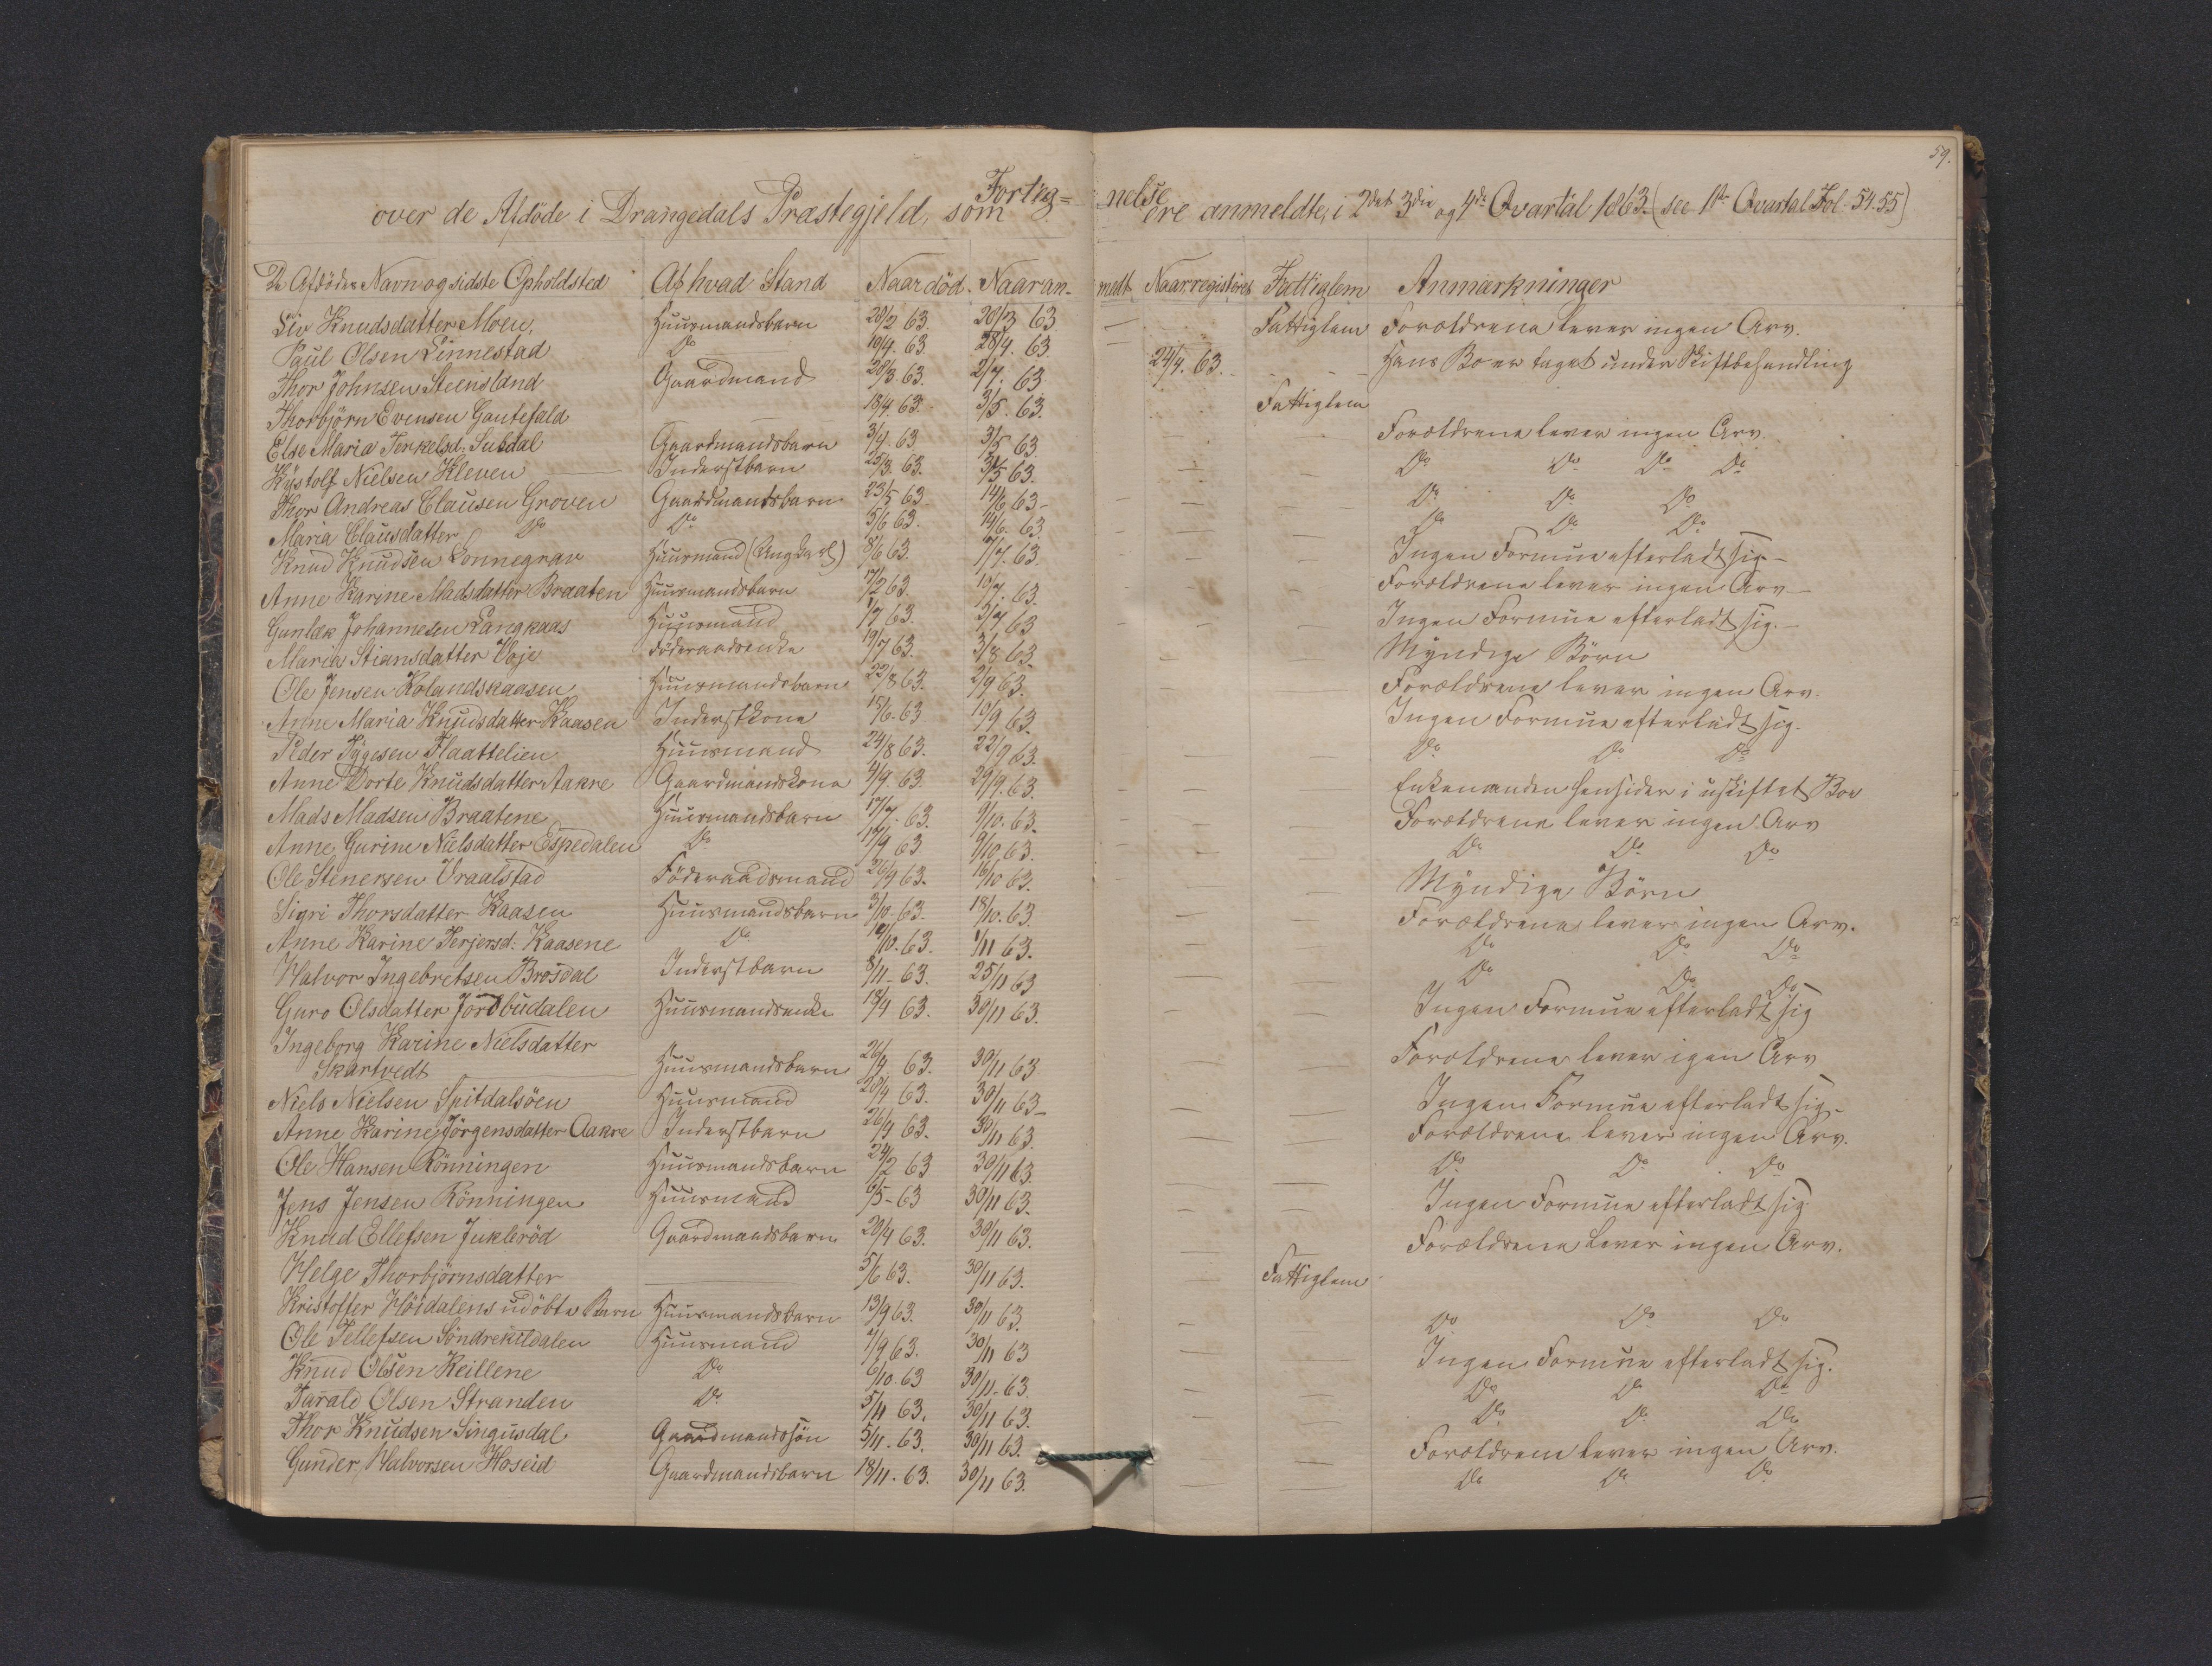 59.
Forteg= nelse
over de Afdöde i Drangedals Præstegjeld, som ere anmeldte, i 2det 3die og 4de Qvartal 1863. (see 1ste Qvartal Fol. 54.55)
De Afdödes Navn og sidste Opholdsted Af hvad Stand Naar död. Naar anmeldt Naar registeret Fattiglem Anmærkninger
Liv Knudsdatter Moen, Huusmandsbarn 20/2 63. 20/3 63 — Fattiglem Forældrene lever ingen Arv.
Paul Olsen Linnestad Do 19/4. 63. 28/4. 63. —
Thor Johnsen Steensland Gaardmand 20/3. 63. 2/4. 63 24/4. 63. - - Hans Bo er taget under Skiftbehandling
Thorbjörn Evensen Gautefald — 18/4. 63. 3/5. 63. Fattiglem
Else Maria Terkelsd. Suldal Gaardmandsbarn 3/4. 63 3/5 63. — — Forældrene lever ingen Arv.
Kjöstolf Nielsen Kleven Inderstbarn 25/3. 63. 31/5 63. — — Do Do Do Do
Thor Andreas Clausen Groven Gaardmandsbarn 23/5 63 14/6 63 - — — — Do Do Do
Maria Clausdatter Do Do 5/6 63. 14/6. 63. — — — Do Do Do
Knud Knudsen Lonnegrav Huusmand (Ungkarl) 8/6 63. 7/7. 63. — — Ingen Formue efterladt sig -
Anne Karine Madsdatter Braaten Huusmandsbarn 17/2 63. 10/7. 63. — — Forældrene lever ingen Arv -
Gunlek Johannesen Langkaas Huusmand 1/7 63. 5/7 63 — — — Ingen Formue efterladt sig. -
Maria Stiansdatter Voje Föderaadsenke 19/7 63. 3/8 63. — — Myndige Börn
Ole Jensen Kolandskaasen Huusmandsbarn 22/8 63. 2/9 63. — — Forældrene lever ingen Arv.
Anne Maria Knudsdatter Kaasen Inderstkone 15/6. 63 10/9 63. — — Ingen Formue efterladt sig.
Peder Tygesen Flaattelien Huusmand 24/8 63. 22/9 63. — — Do Do Do
Anne Dorte Knudsdatter Aakre Gaardmandskone 4/9. 63. 29/9. 63. — — — Enkemanden hensider i uskiftet Boe
Mads Madsen Braatene Huusmandsbarn 17/7. 63. 9/10. 63. — — — Forældrene lever ingen Arv
Anne Gurine Nielsdatter Espedalen Do 17/9 63 9/10 63. — — — Do Do Do
Ole Stenersen Vraalstad Föderaadsmand 26/9 63. 16/10 63. — — Myndige Börn
Sigri Thorsdatter Kaasen Huusmandsbarn 3/10 - 63. 18/10. 63. — — Forældrene lever ingen Arv.
Anne Karine Terjersd: Kaasene Do 10/10. 63. 1/11 63. — — Do Do Do
Halvor Ingebretsen Brosdal Inderstbarn 8/11 - 63. 25/11 63 — — Do Do Do
Guro Olsdatter Jordbudalen Huusmandsenke 18/4 63. 30/11 63. — — — Ingen Formue efterladt sig
Ingeborg Karine Nielsdatter
Skartvedt Huusmandsbarn 26/4. 63. 30/11 63 — — Forældrene lever igen Arv
Niels Nielsen Spitdalsöen Huusmand 20/4 63. 30/11 63 - — — Ingen Formue efterladt sig -
Anne Karine Jörgensdatter Aakre Inderstbarn 26/9 63. 30/11 63. — — Forældrene lever ingen Arv.
Ole Hansen Rönningen Huusmandsbarn 24/2 63 30/11 63. — — Do Do Do
Jens Jensen Rönningen Huusmand 6/5 - 63 30/11 63. — — Ingen Formue efterladt sig
Knud Ellefsen Jukleröd Gaardmandsbarn 20/4 63. 30/11 63. — — Forældrene lever ingen Arv.
Helge Thorbjörnsdatter — 5/6 63. 30/11 63. — Fattiglem
Kristoffer Höidalens udöbte Barn Huusmandsbarn 13/9 63. 30/11 63. — — Do Do Do
Ole Tellefsen Söndrekildalen Huusmand 7/9 63. 30/11 63 — — Ingen Formue efterladt sig.
Knud Olsen Keillene Do 6/10. 63 30/11. 63. — — Do Do Do
Tarald Olsen Stranden Do 5/11 63. 30/11 63. — — Do Do Do
Thor Knudsen Singusdal Gaardmandssön 5/11. 63. 30/11 63. — — Forældrene lever ingen Arv.
Gunder Halvorsen Hoseid Gaardmandsbarn 18/11. 63. 30/11 63. — — Do Do Do